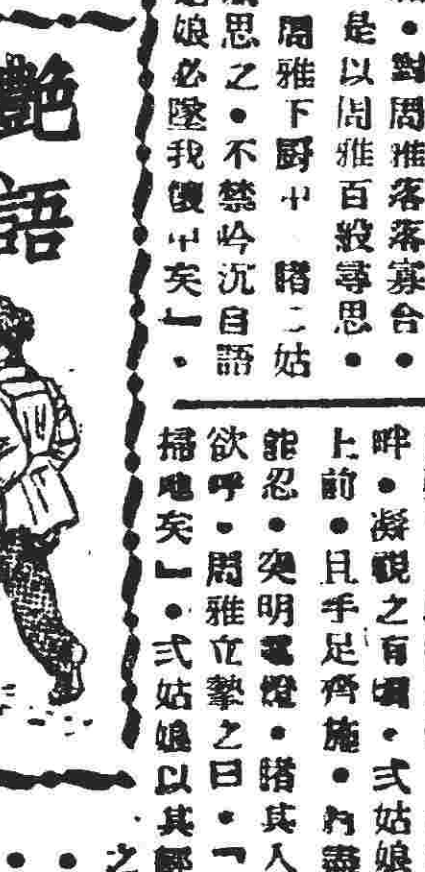 對周雅落落寡合・
是以周雅百般尋思・
周雅下厨中 睹二姑
思之・不禁吟沉自語
娘必墜我懷中矣」・
畔・凝視之有頃・弍姑娘
上前・且手足齊施・內盡
忍・突明電燈・睹其人
欲呼・周雅立摯之曰・「
掃地矣」・弍姑娘以其
艷語
之